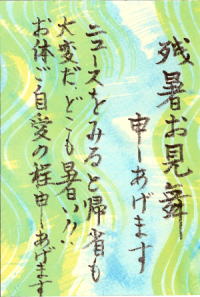 残暑お見舞
申しあげます
ニュースをみると帰省も
大変だ、どこも暑い〃
お体ご自愛の程申しあげます